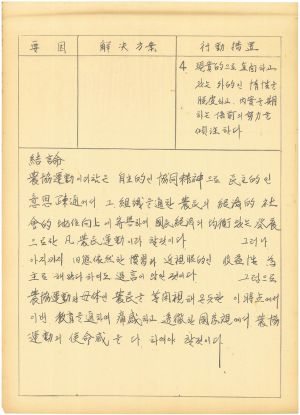 要因 解決方案 行動措置
4. 現實的으로 直面하고
있는 外的인 情性을
脫皮하고, 內實을 期
하는 倍前의 努力을
傾注하다
結論
農協運動이라함은 自主的인 協同精神으로 民主的인
意思疎通에서 그 組織을 通한 農民의 經濟的 社
會的 地位向上에 寄與하여 國民經濟의 均衡있는 發展
으로한 凡農民運動이라 할것이다 그러나
아직까지 旧態依然한 慣習과 近視眼的인 收益性 為
主로 해왔다 하여도 過言이 않인것이다 그럼으로
農協運動의 母体인 農民을 等閑視해 온듯한 이 時点에서
이번 教育을 通하여 痛感하고 透徹한 國家觀에서 農協
運動의 使命感을 다 하여야 할것이다